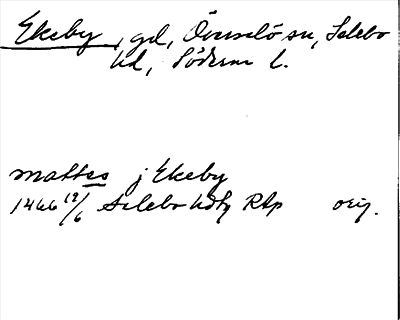 Ekeby, gd, Överselö sn, Selebo
hd, Söderm l.
mattes j Ekeby
1466 12/6 Selebo hdtg RAp orig.